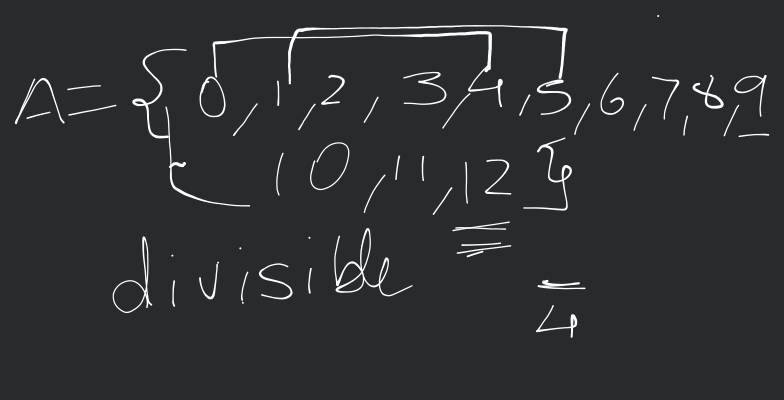 A = { 0, 1, 2, 3, 4, 5, 6, 7, 8, 9
10, 11, 12 }
divisible
4